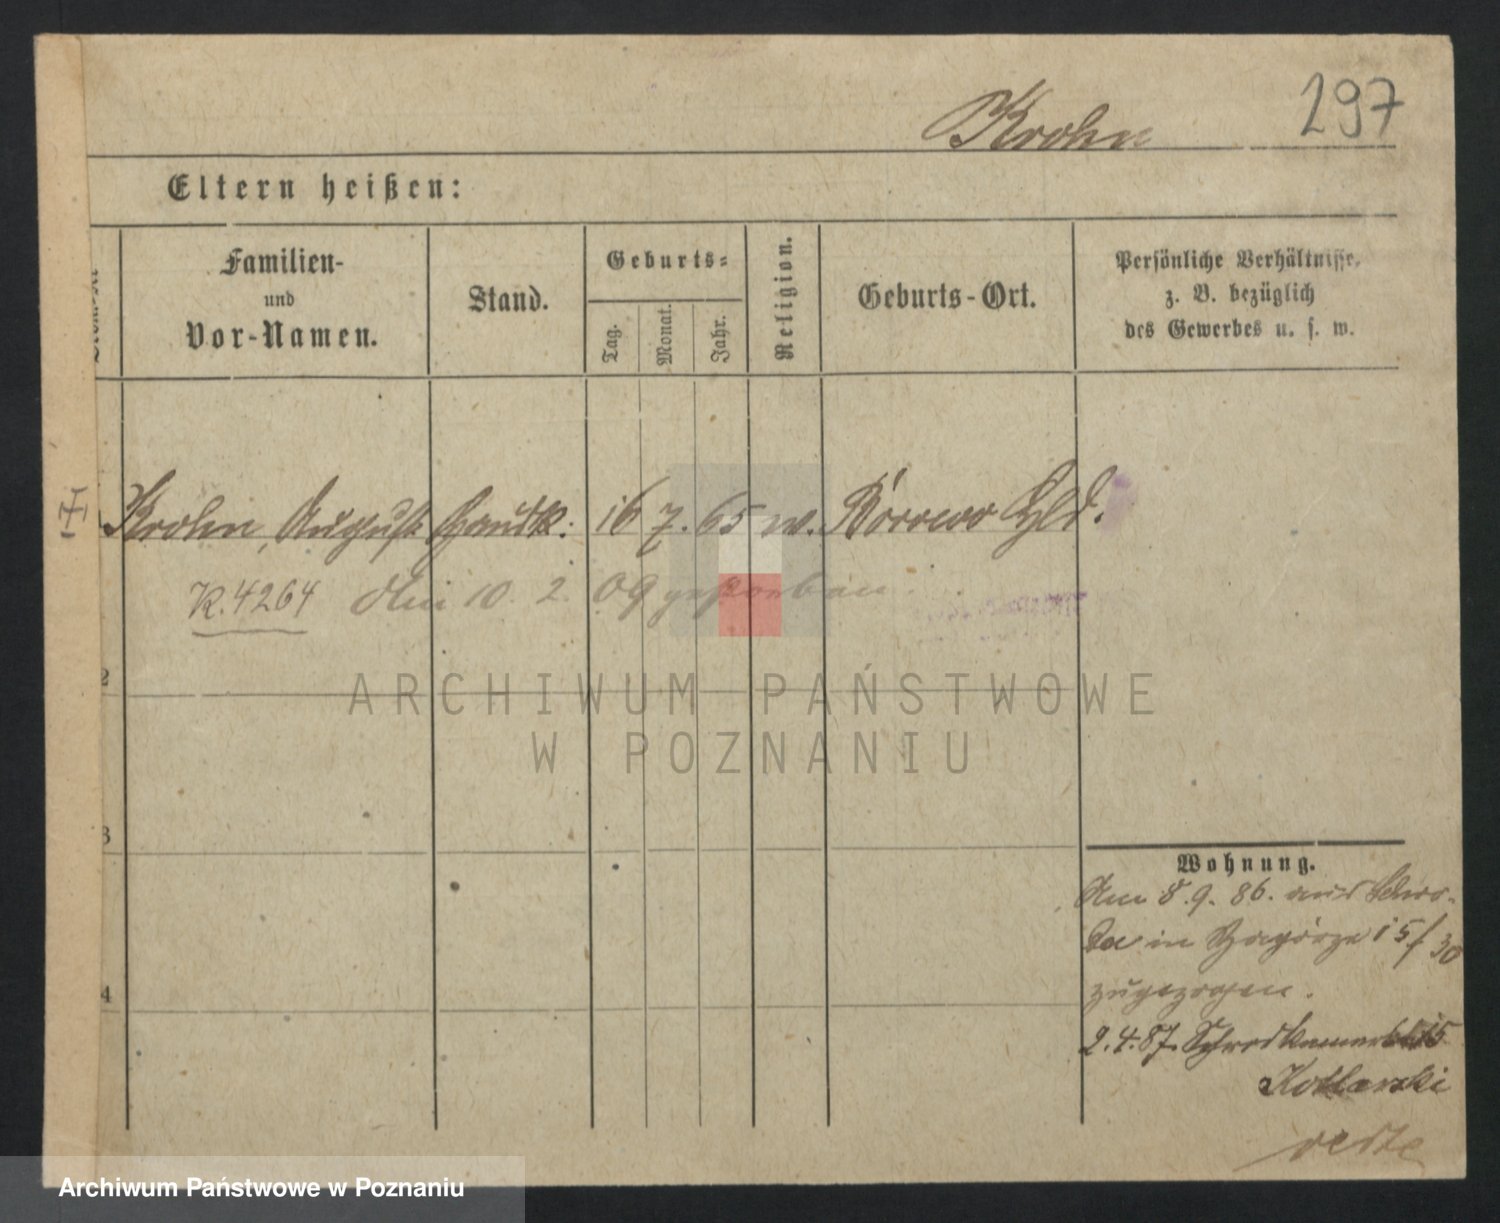 Krohn
297
Eltern heißen:
Familien-
und
Vor-Namen.
Stand.
Geburts-
Tag.
Monat.
Jahr.
Religion.
Geburts-Ort.
Persönliche Verhältnisse,
z. B. bezüglich
des Gewerbes u. s. w.
Krohn, August 16 7. 65 w. Borowo Hld.
K. 4264 den 10. 2. 09 gestorben.
2
3
4
Wohnung.
Am 8. 9. 86. aus
in Zagórze 15/30
zugezogen.
2. 4. 87. 15
Kotlarski
ARCHIWUM PAŃSTWOWE
W POZNANIU
Archiwum Państwowe w Poznaniu